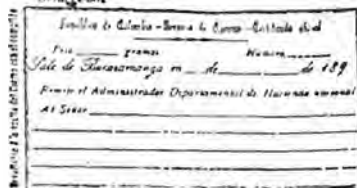 República de Colombia - Servicio de Correos - Certificado oficial
Peso gramos Número
Sale de Bucaramanga en de de 189
Remite el Administrador Departamental de Hacienda nacional
Al Señor